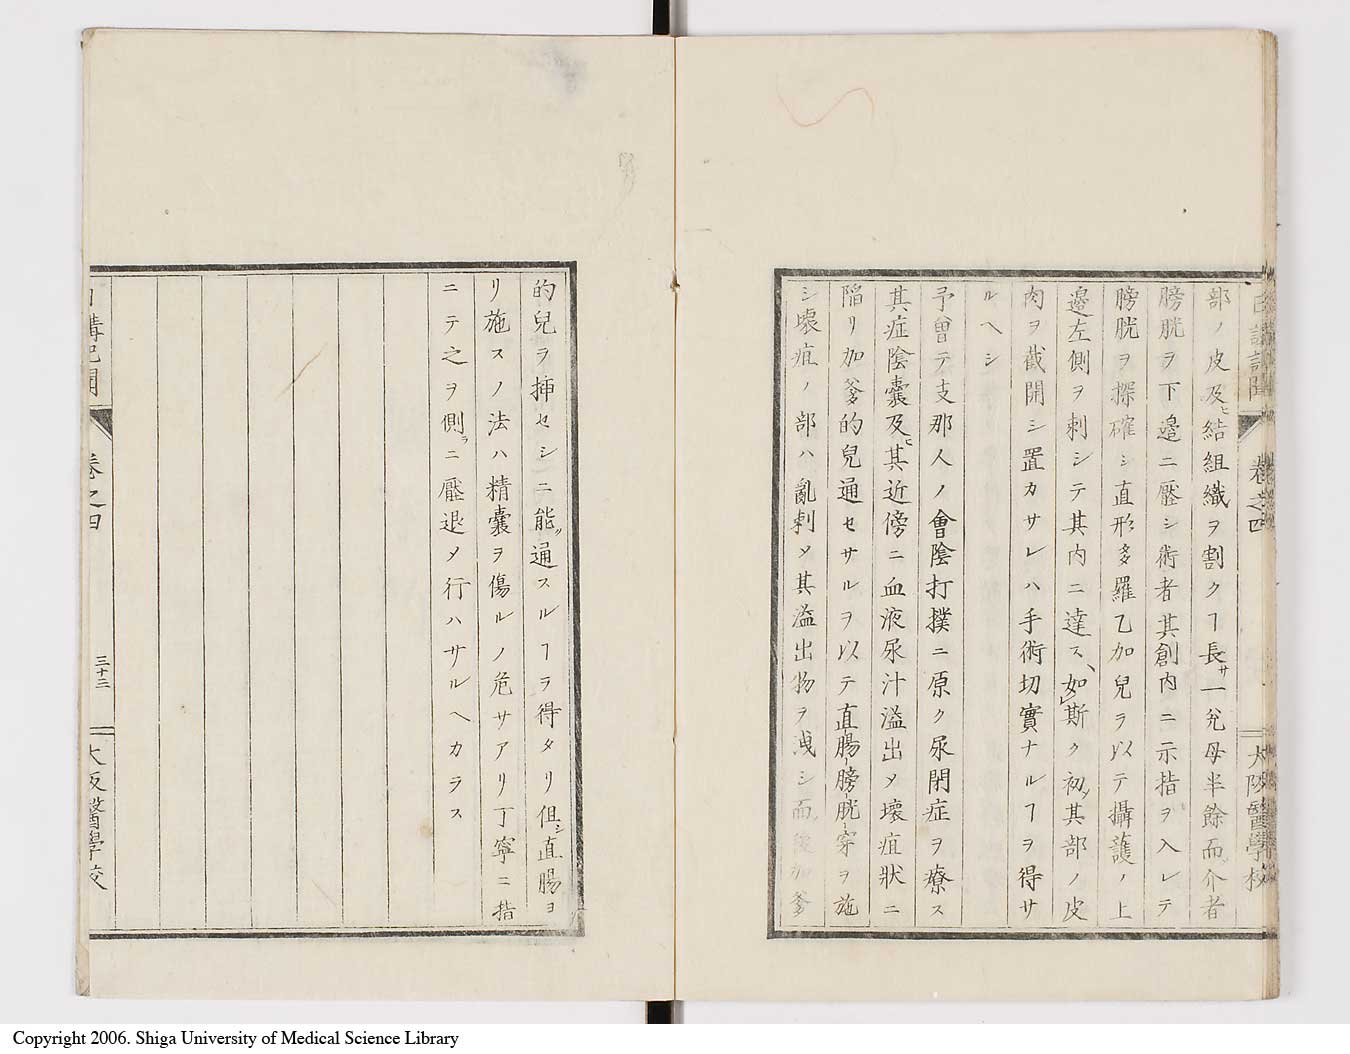 部ノ皮及ヒ結組織ヲ割クヿ長サ一兊母半餘而介者
膀胱ヲ下邉ニ壓シ術者其創内ニ示指ヲ入レテ
膀胱ヲ探確シ直形多羅乙加兒ヲ以テ攝護ノ上
邉左側ヲ刺シテ其内ニ達ス、如斯ク初メ其部ノ皮
肉ヲ截開シ置カサレハ手術切實ナルヿヲ得サ
ルヘシ
予曾テ支那人ノ會陰打撲ニ原ク尿閉症ヲ療ス
其症陰囊及ヒ其近傍ニ血液尿汁溢出メ壊疽狀ニ
陥リ加爹的兒通セサルヲ以テ直腸膀胱穿ヲ施
シ壊疽ノ部ハ亂刺メ其溢出物ヲ洩シ而後加爹
大阪醫學校
的兒ヲ挿セシニ能ク通スルヿヲ得タリ但シ直腸ヨ
リ施スノ法ハ精囊ヲ傷ルノ危サアリ丁寧ニ指
ニテ之ヲ側ラニ壓退メ行ハサルヘカラス
講記聞 卷之四 三十三 大阪醫學校
Copyright 2006. Shiga University of Medical Science Library